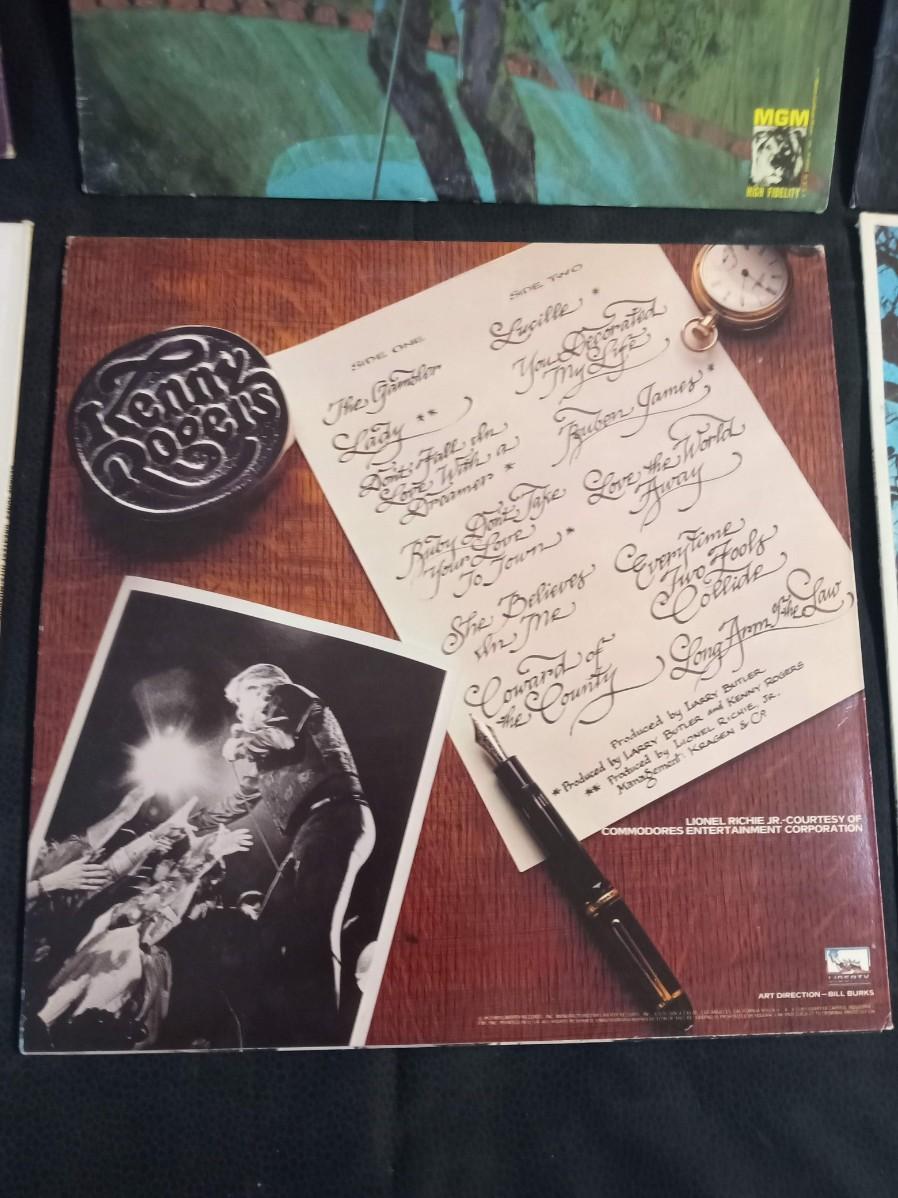 MGM
HIGH FIDELITY
Kenny
Rogers
SIDE ONE
The Gambler
Lady **
Don't Fall In
Love With a
Dreamer *
Ruby Don't Take
Your Love
To Town *
She Believes
In Me
Coward of
the County
SIDE TWO
Lucille *
You Decorated
My Life
Ruben James *
Love the World
Away
Everytime
Two Fools
Collide
Long Arm of the Law
Produced by LARRY BUTLER
* Produced by LARRY BUTLER and KENNY ROGERS
** Produced by LIONEL RICHIE, JR.
Management: KRAGEN & CO.
LIONEL RICHIE JR.-COURTESY OF
COMMODORES ENTERTAINMENT CORPORATION
LIBERTY
ART DIRECTION—BILL BURKS